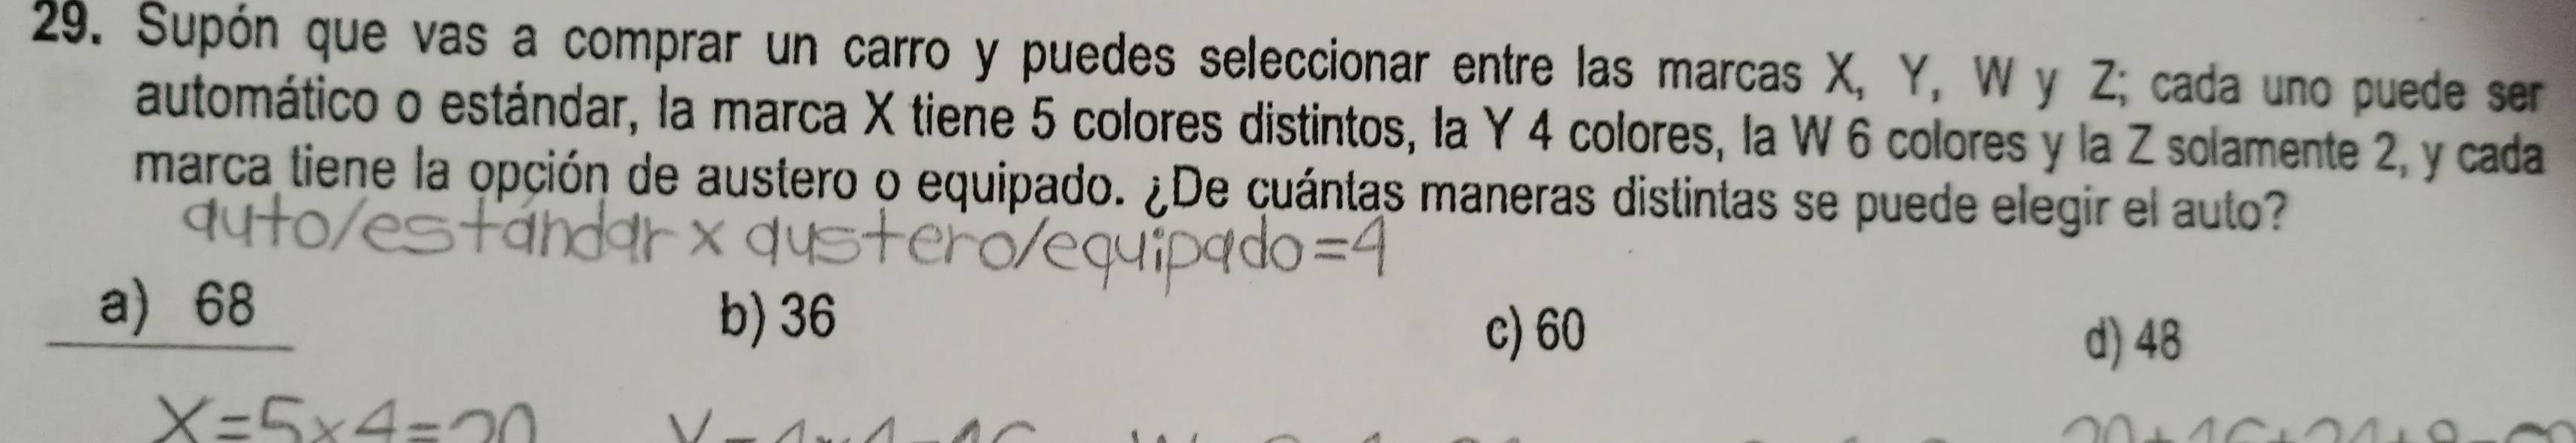 29. Supón que vas a comprar un carro y puedes seleccionar entre las marcas X, Y, W y Z; cada uno puede ser
automático o estándar, la marca X tiene 5 colores distintos, la Y 4 colores, la W 6 colores y la Z solamente 2, y cada
marca tiene la opción de austero o equipado. ¿De cuántas maneras distintas se puede elegir el auto?
auto/estándar x austero/equipado=4
a) 68 b) 36 c) 60 d) 48
X=5x4=20